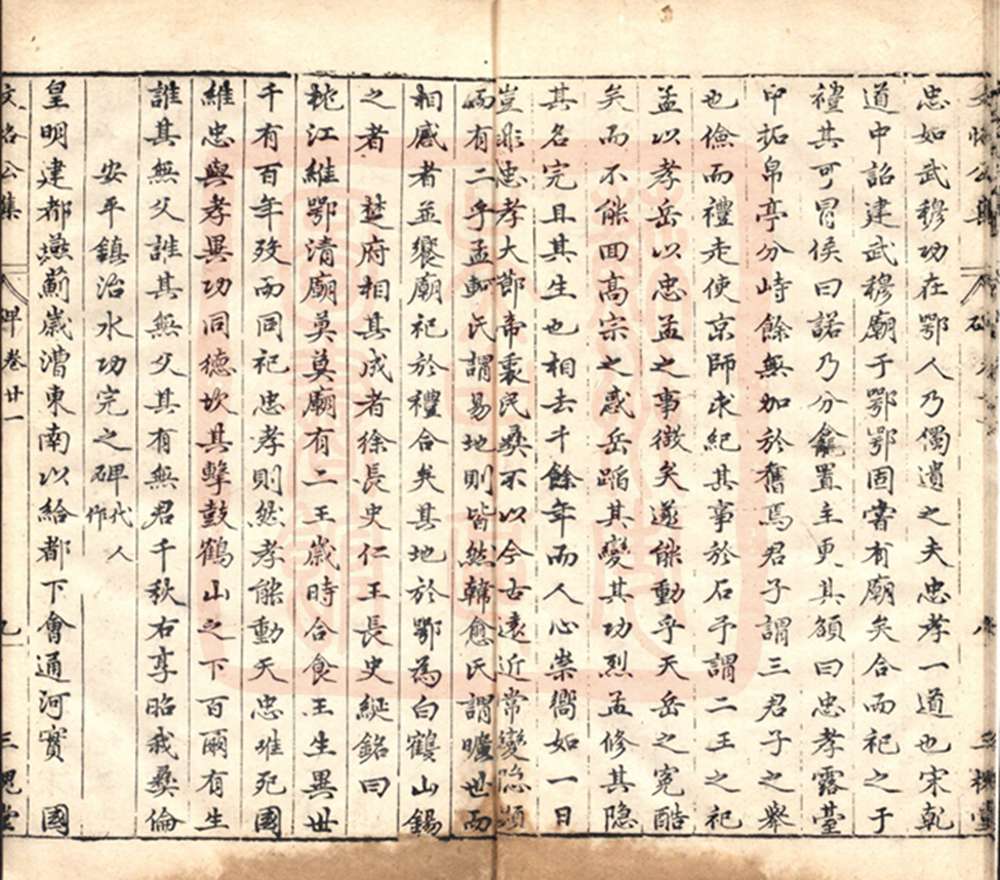 忠如武穆功在鄂人乃獨遺之夫忠孝一道也宋乾
道中詔建武穆廟于鄂鄂固嘗有廟矣合而祀之于
禮其可胃侯曰諾乃分龕置主更其額曰忠孝露臺
中拓帛亭分峙餘無加於舊焉君子謂三君子之舉
也儉而禮走使京師求紀其事於石予謂二王之祀
孟以孝岳以忠孟之事徵矣遂能動乎天岳之寃酷
矣而不能回高宗之惑岳蹈其變其功烈孟修其隐
其名完且其生也相去千餘年而人心崇嚮如一日
豈非忠孝大節帝衷民彝不以今古遠近常變隐顯
而有二乎孟軻氏謂易地則皆然韓愈氏謂曠世而
相感者並饗廟祀於禮合矣其地於鄂為白鶴山錫
之者 楚府相其成者徐長史仁王長史綖銘曰
枕江維鄂清廟奠奠廟有二王歲時合食王生異世
千有百年歿而同祀忠孝則然孝能動天忠堆死國
維忠與孝異功同德坎其擊鼓鶴山之下百爾有生
誰其無父誰其無父其有無君千秋右享昭我彝倫
安平鎮治水功完之碑代人作
皇明建都燕薊歲漕東南以給都下會通河實 國
文恪公集 碑卷廿一 三槐堂